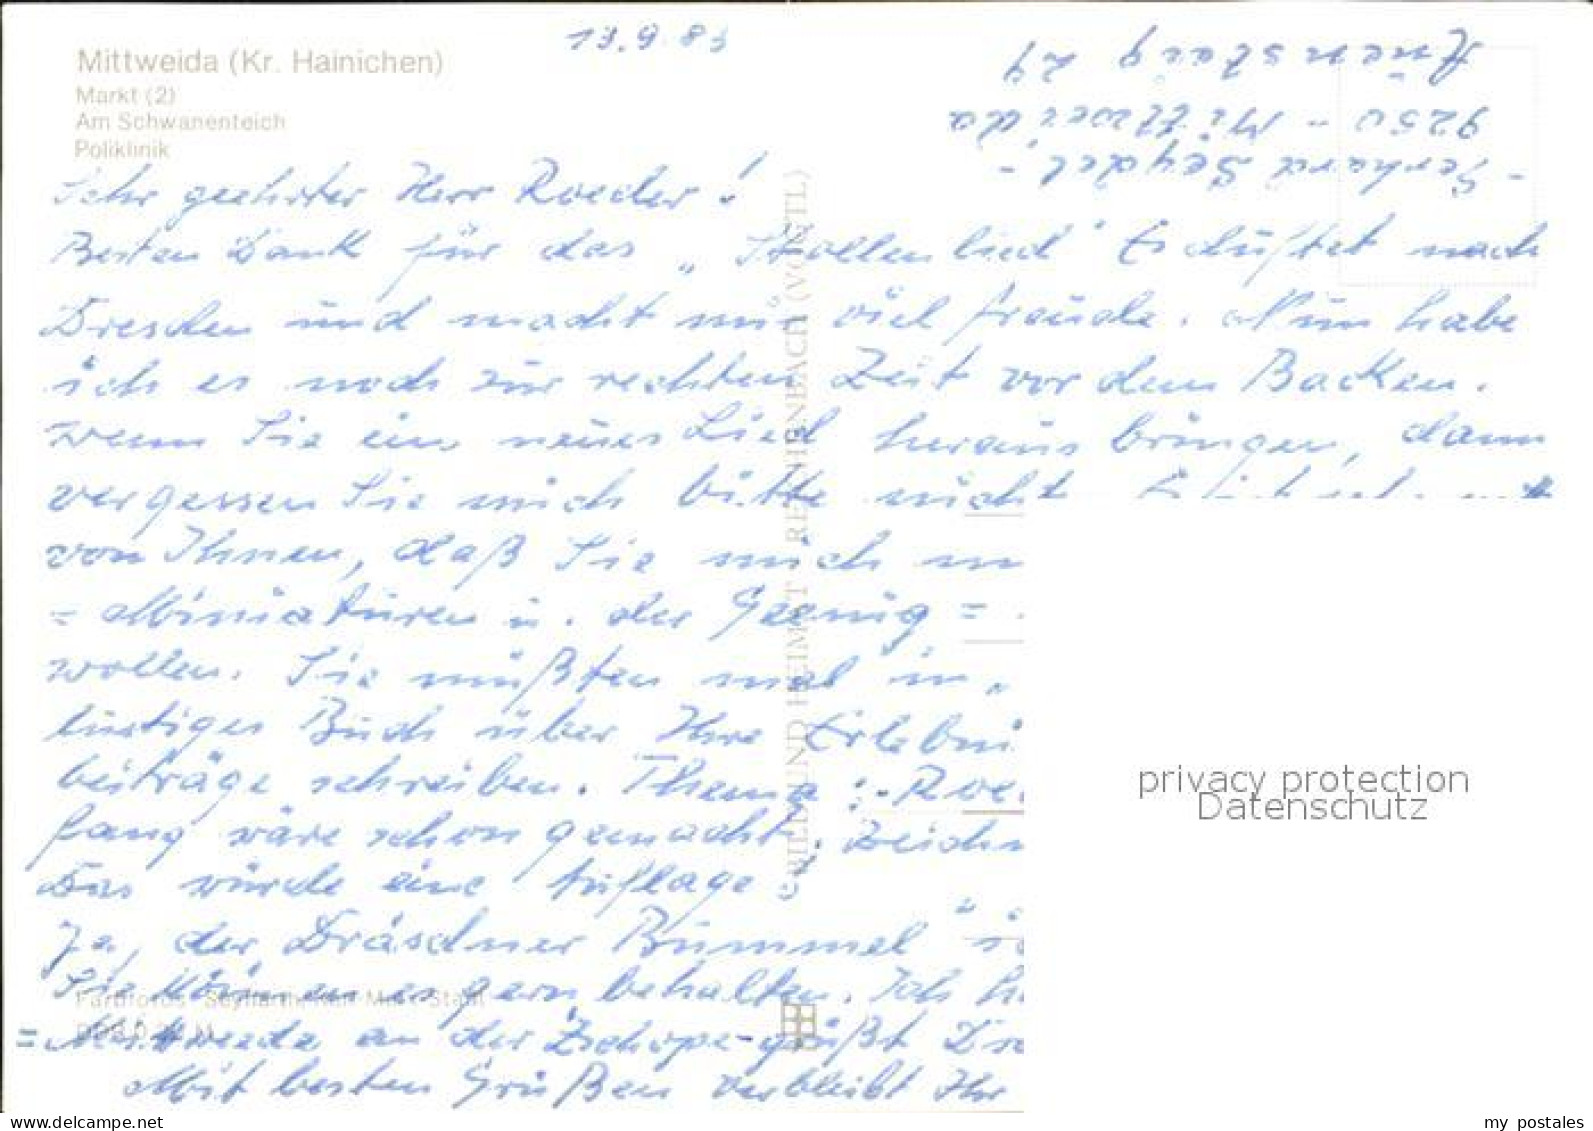 Mittweida (Kr. Hainichen)
Markt (2)
Am Schwanenteich
Poliklinik
13.9.83
- Gerhard Seydel -
9250 - Mittweida
24
Sehr geehrter Herr Roeder!
Besten Dank für das „Stollenlied" Es duftet nach
Dresden und macht mir viel Freude. Nun habe
ich es noch zur rechten Zeit vor dem Backen.
wenn Sie ein neues Lied heraus bringen, dann
vergessen Sie mich bitte nicht
von Ihnen, daß Sie mich
= Miniaturen u. der =
wollen. Sie müßten mal
lustiges Buch über Ihre
beiträge schreiben. Thema :
fang wäre schon gemacht.
Das würde eine Auflage
Ja, der Dräsdner Bummel"
Sie können es gern behalten. Ich
= Mittweida an der Zschopa - grüßt
Mit besten Grüßen verbleibt Ihr
BILD UND HEIMAT REICHENBACH (VOGTL)
privacy protection
Datenschutz
www.delcampe.net
my_postales